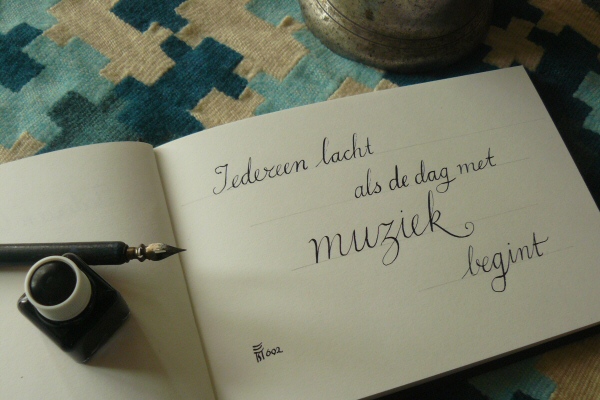 Iedereen lacht
als de dag met
muziek
begint
002